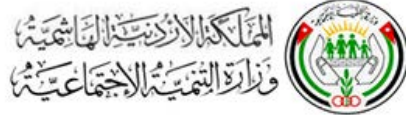 المملكة الأردنية الهاشمية
وزارة التنمية الاجتماعية